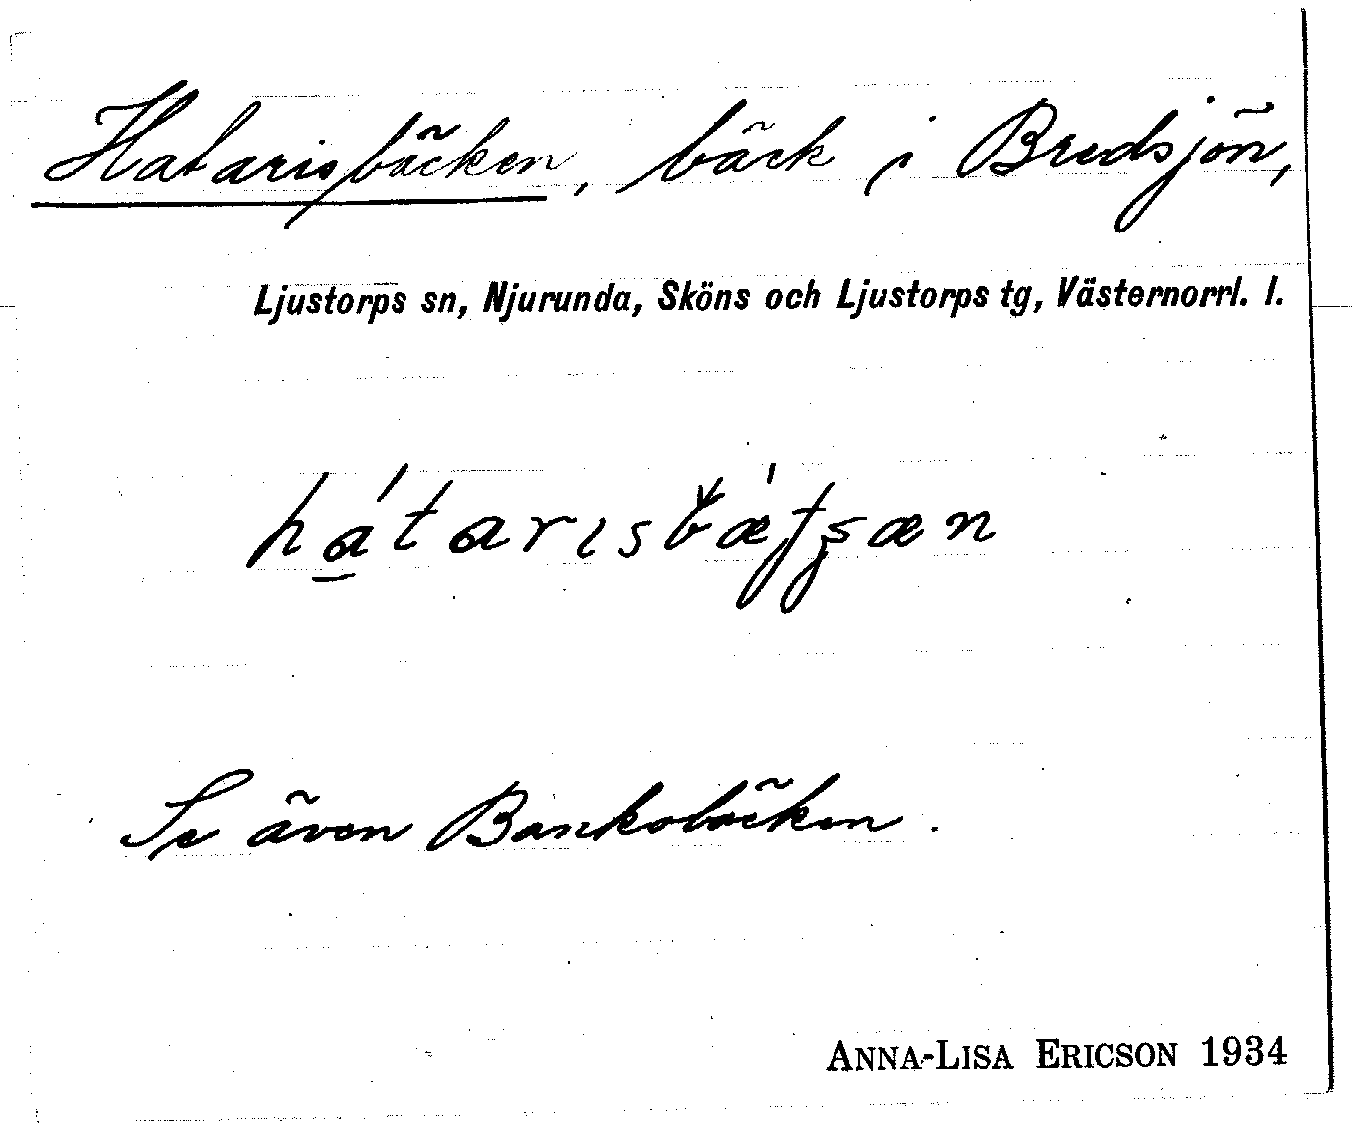 Hatarisbäcken, bäck i Bredsjön,
Ljustorps sn, Njurunda, Sköns och Ljustorps tg, Västernorrl. l.
Se även Bankobäcken.
ANNA-LISA ERICSON 1934